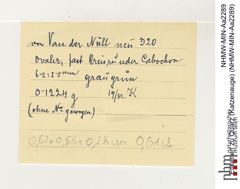 von Van der Nüll neu 320
ovaler, fast kreisrunder Cabochon
graugrün
0.1224 g
(ohne No gewogen)
0,62 × 0,58 × 0,28 cm 0,61 ct
NHMW-MIN-Aa2289
(Katzenauge) (NHMW-MIN-Aa2289)
nhm